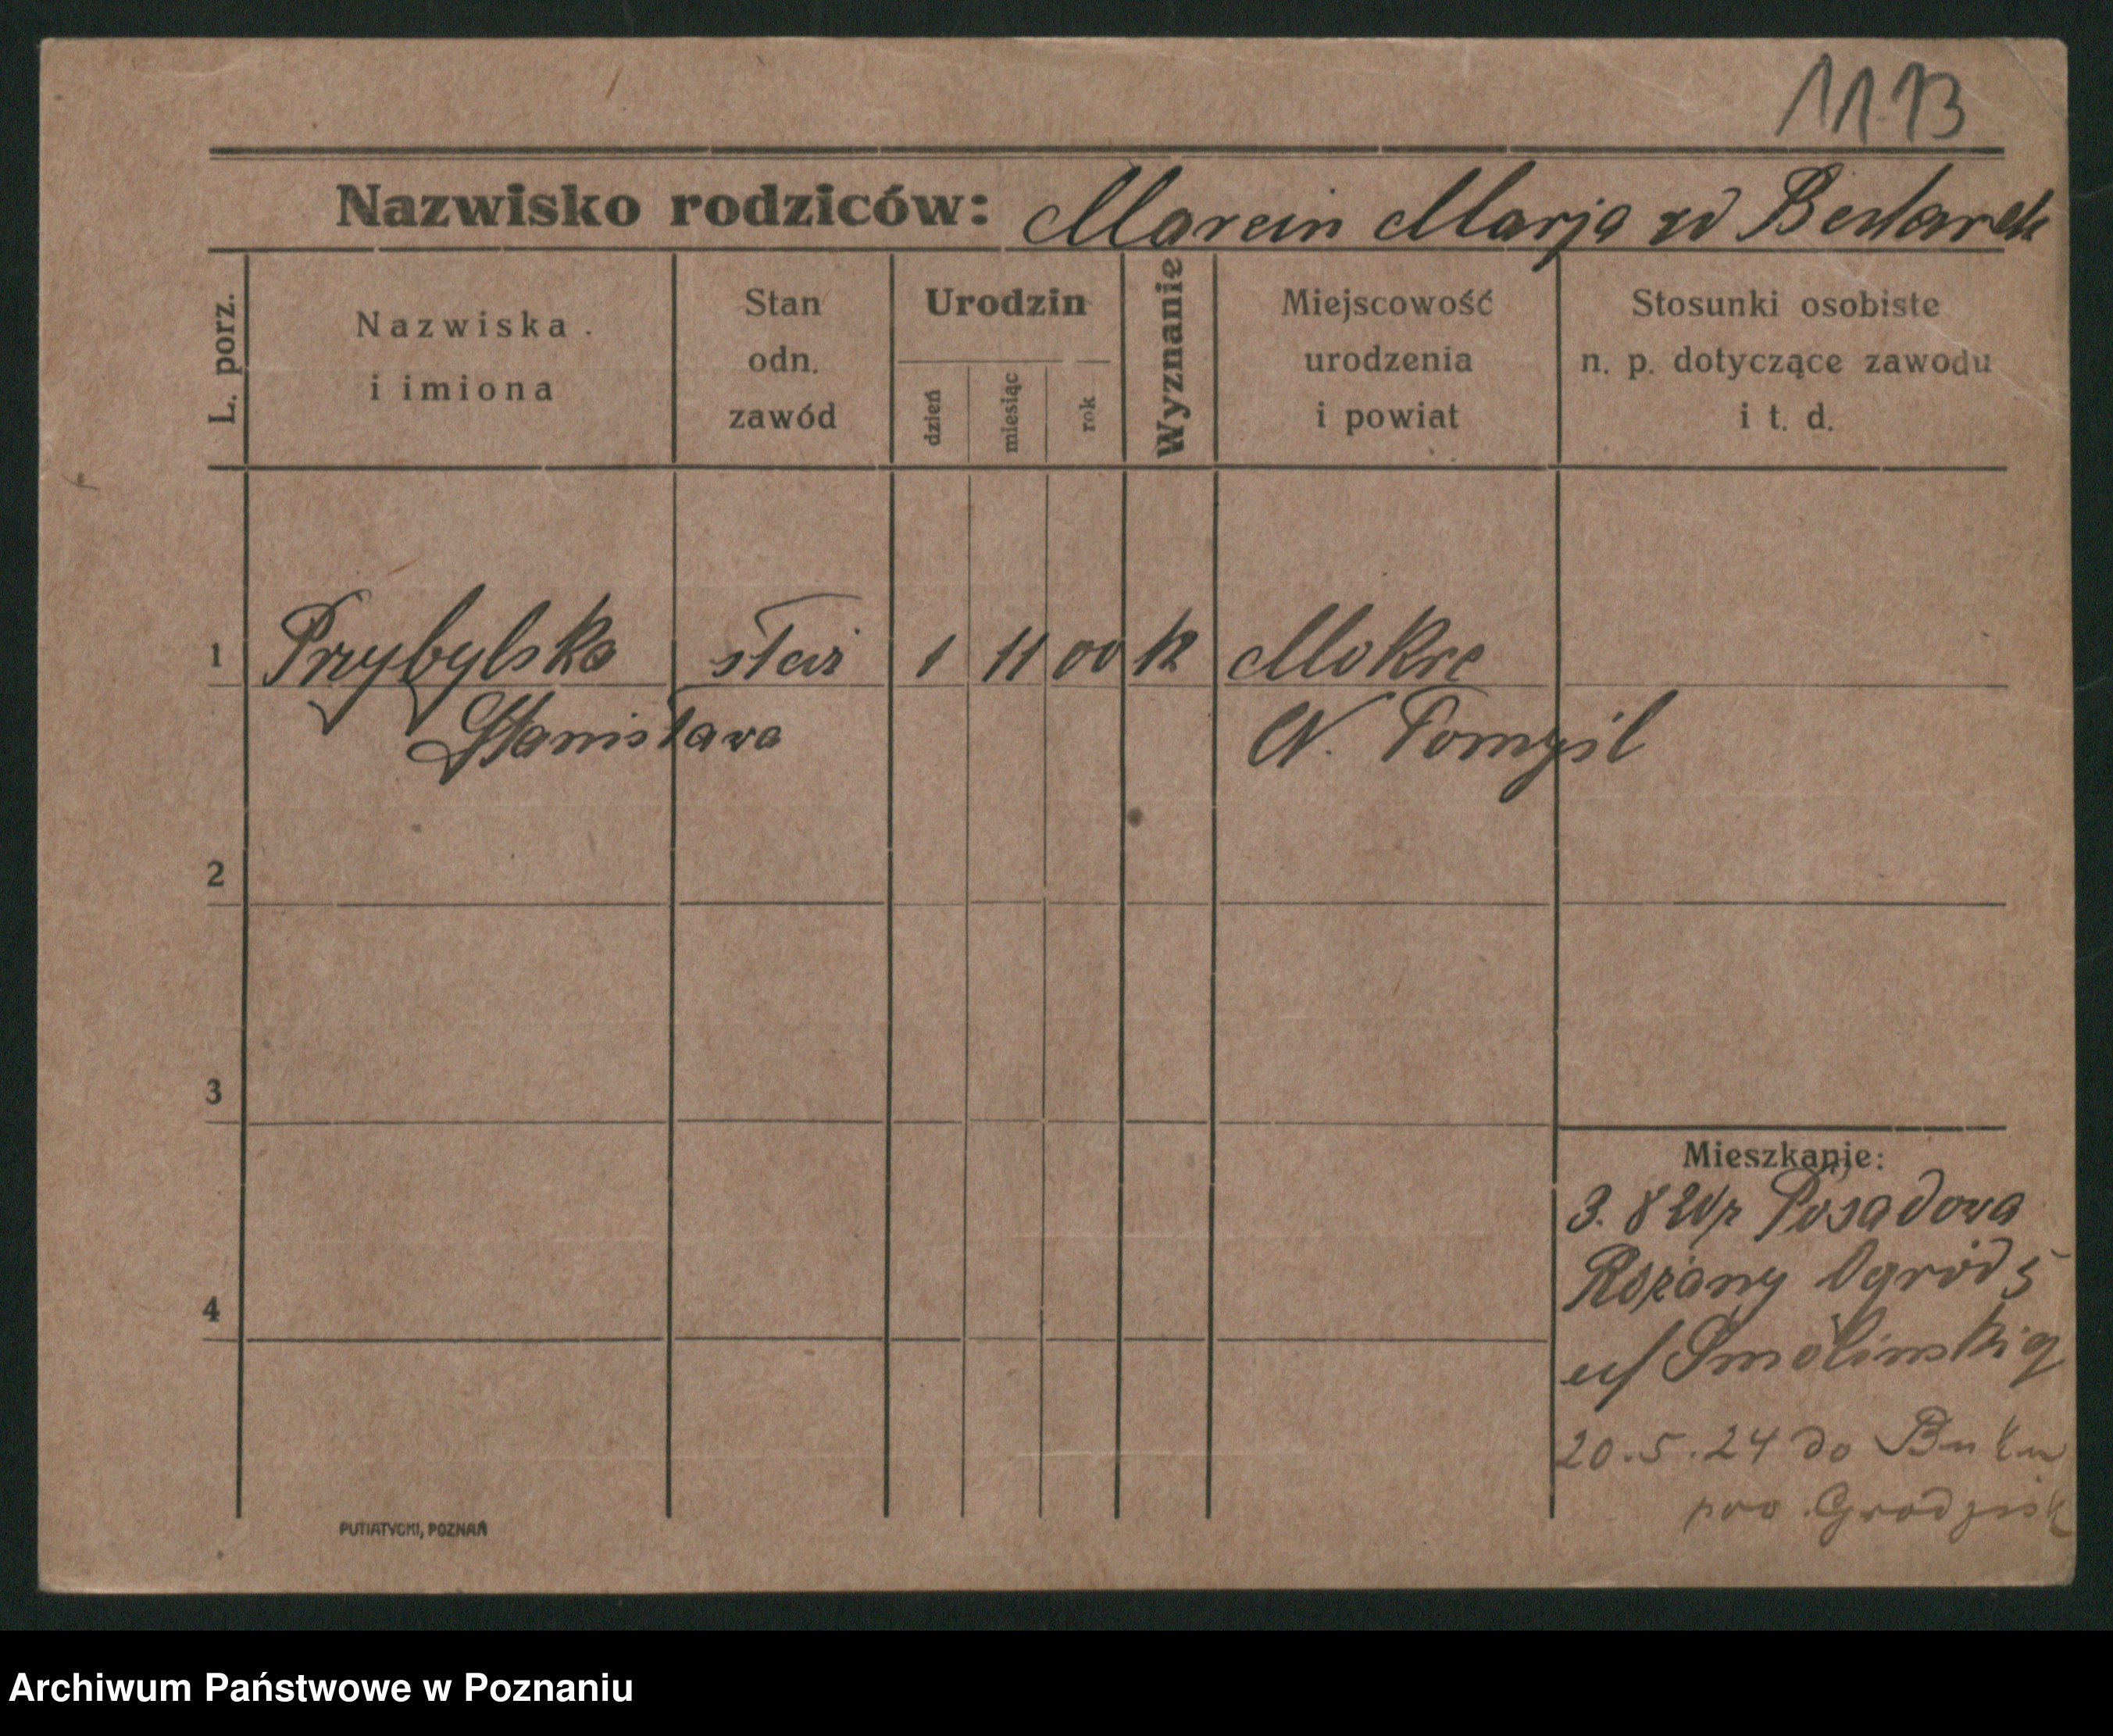 1113
Nazwisko rodziców: Marcin Marja zd Bednarek
L. porz.
Nazwiska i imiona
Stan odn. zawód
Urodzin
dzień miesiąc rok
Wyznanie
Miejscowość urodzenia i powiat
Stosunki osobiste n. p. dotyczące zawodu i t. d.
1 Przybylska służ 1 11 00 k Mokre
Stanisława N. Tomyśl
2
3
4
Mieszkanie:
3. 8 Posadowa
Rożany Ogród 5
u/ Smolinskig
20.5.24 do Buku
pow. Grodzisk
PUTIATYCKI, POZNAŃ
Archiwum Państwowe w Poznaniu